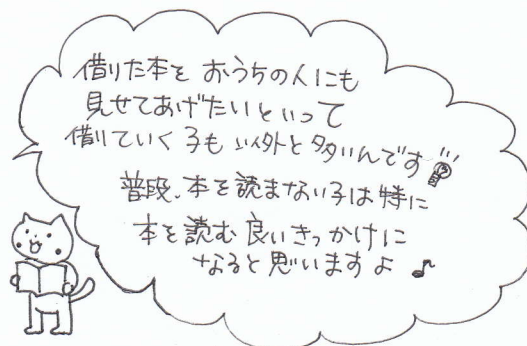 借りた本を おうちの人にも
見せてあげたいといって
借りていく子も 以外と多いんです
普段、本を読まない子は特に
本を読む良いきっかけに
なると思いますよ♪